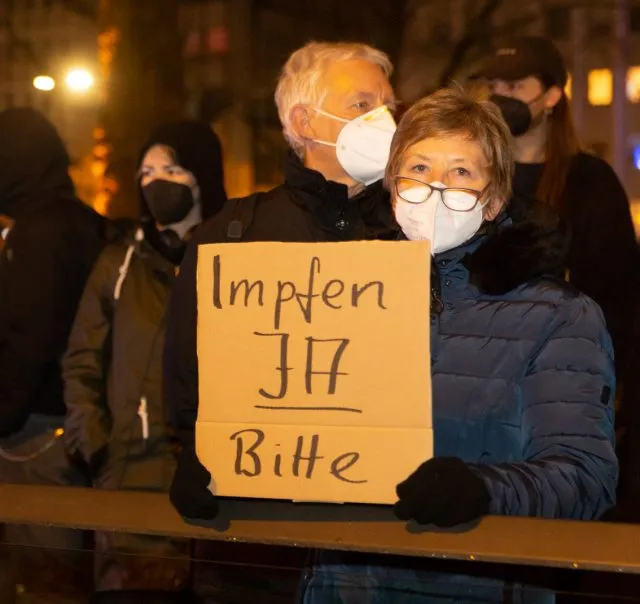 Impfen
JA
Bitte